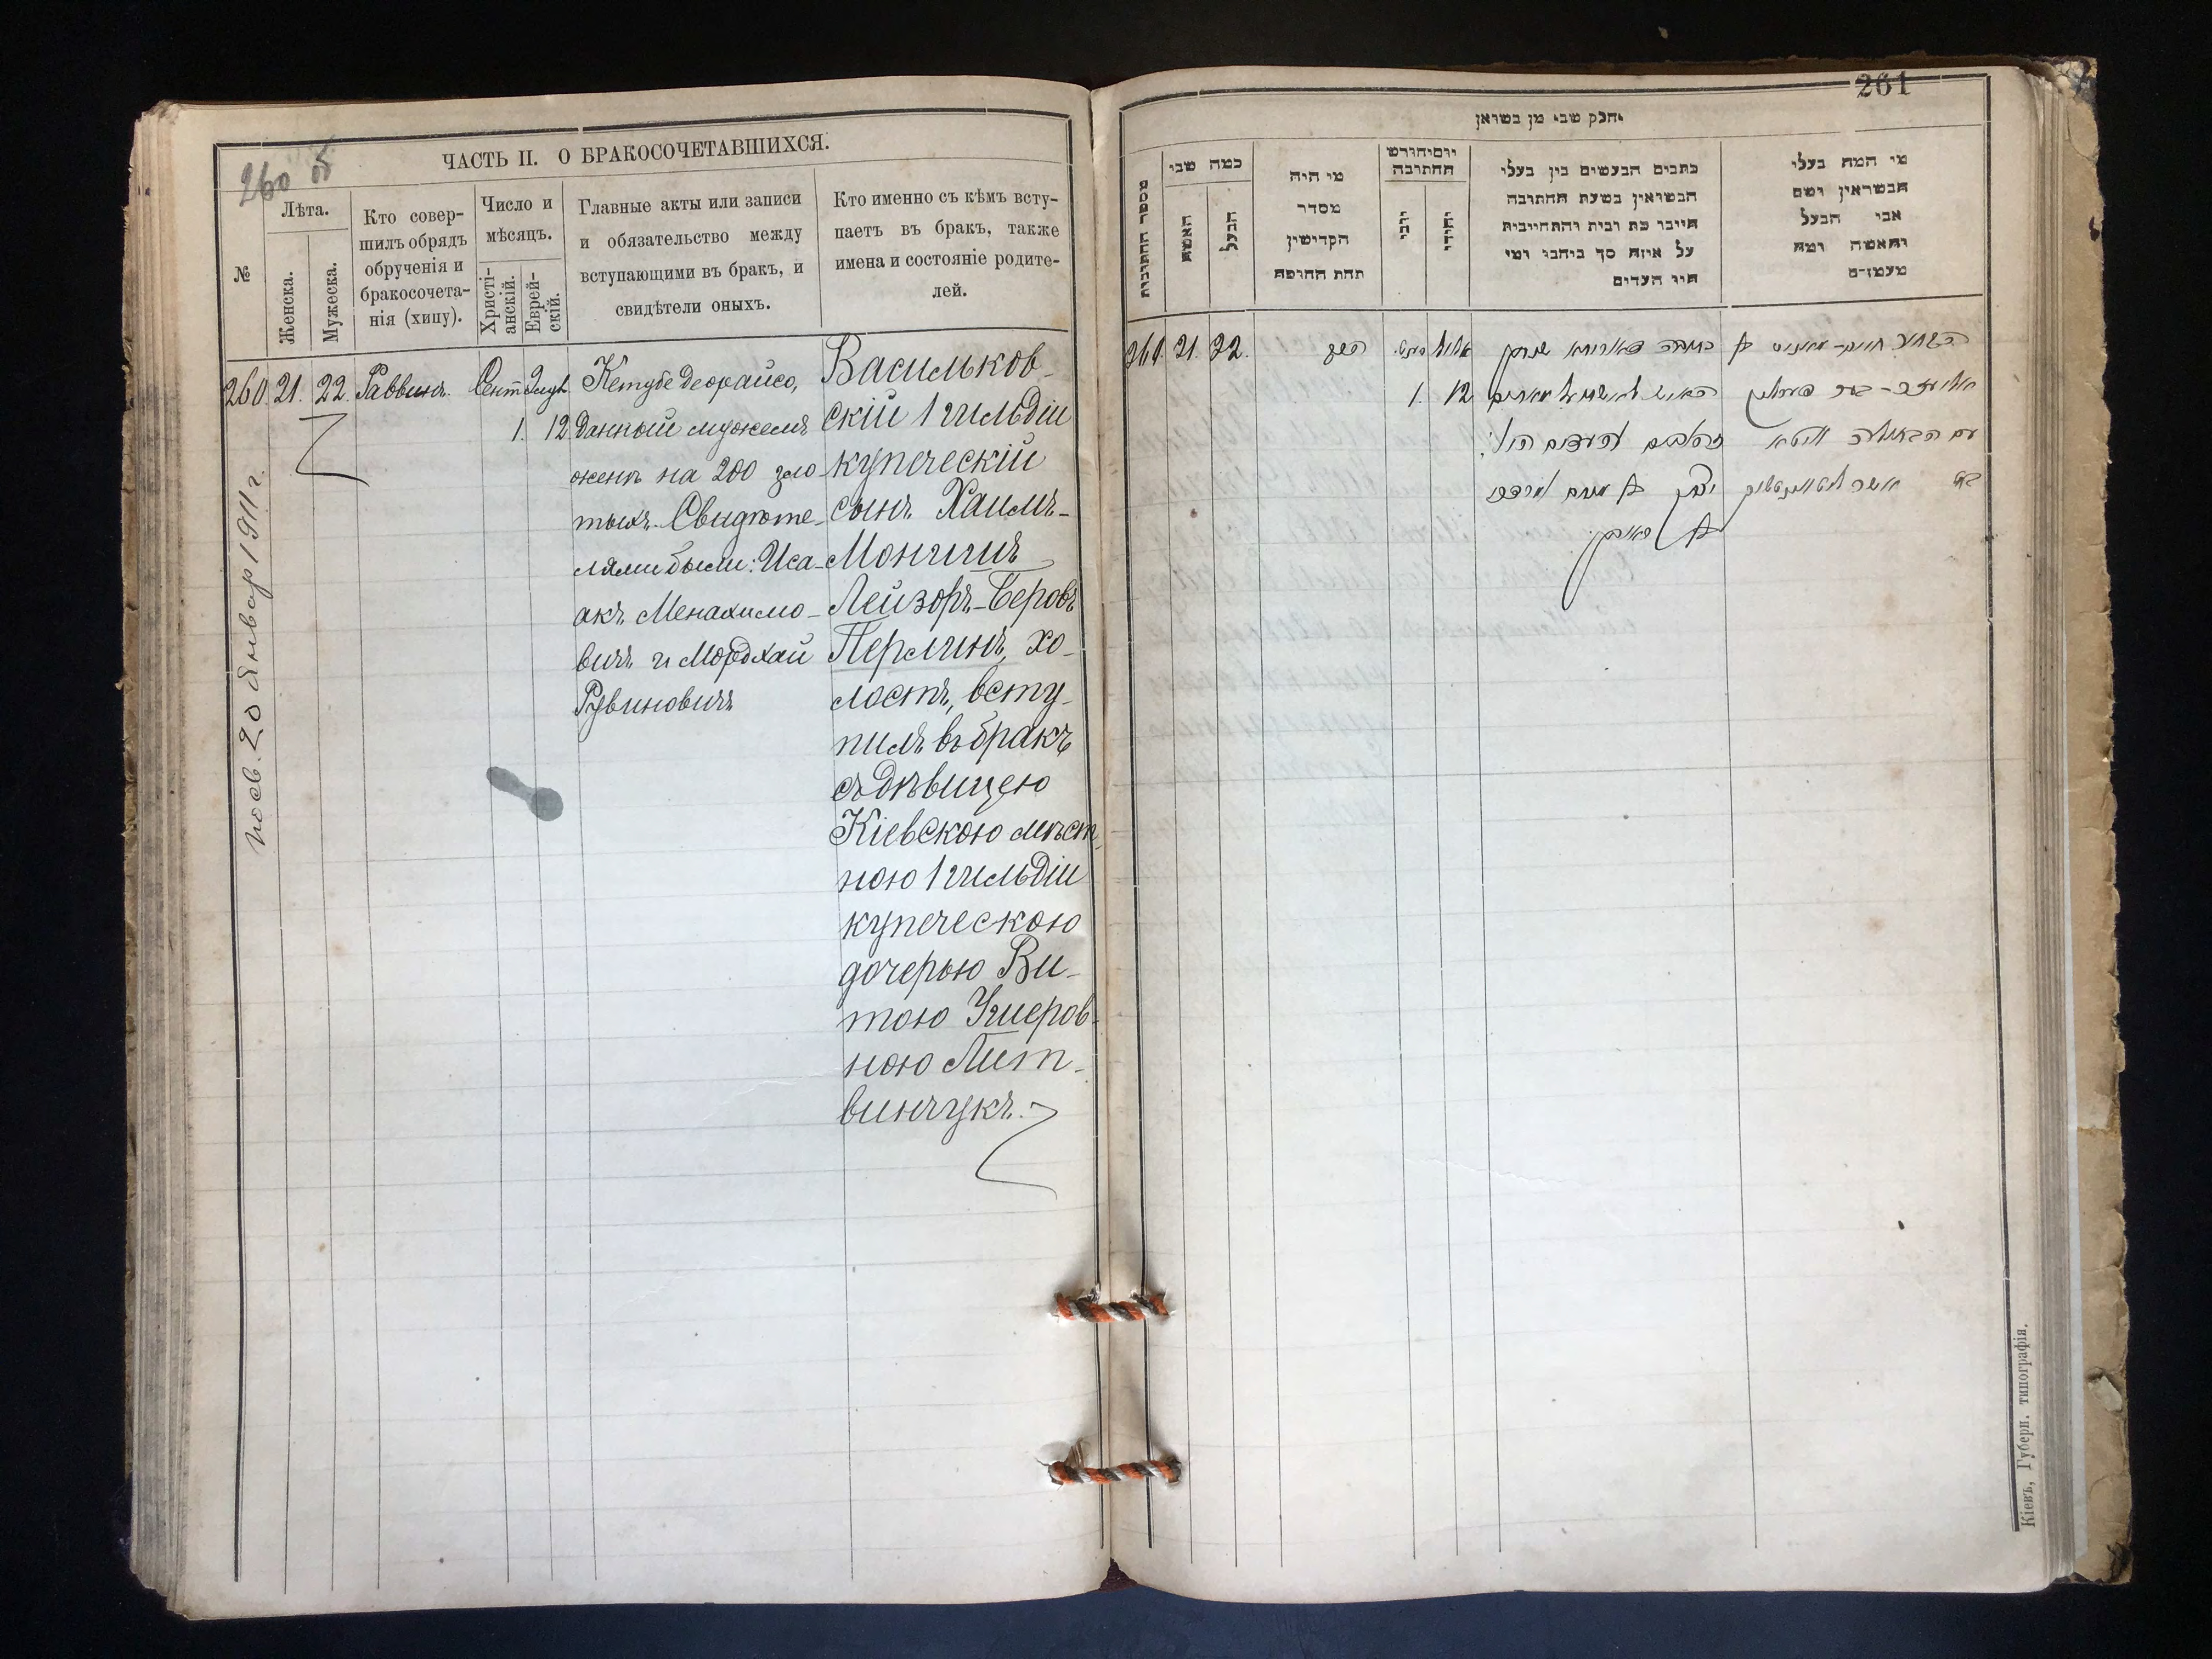 260 об
ЧАСТЬ II. О БРАКОСОЧЕТАВШИХСЯ.
№
Лѣта.
Женска.
Мужеска.
Кто совер-
шилъ обрядъ
обрученія и
бракосочета-
нія (хипу).
Число и
мѣсяцъ.
Христі-
анскій.
Еврей-
скій.
Главные акты или записи
и обязательство между
вступающими въ бракъ, и
свидѣтели оныхъ.
Кто именно съ кѣмъ всту-
паетъ въ бракъ, также
имена и состояніе родите-
лей.
260. 21. 22. Раввинъ. Сент Элул
1. 12.
Кетубе деорайсо,
данный мужемъ
женѣ на 200 зло-
тыхъ. Свидѣте-
лями были: Иса-
акъ Менахимо-
вичъ и Мордхай
Рувиновичъ
Васильков-
скій 1 гильдіи
купеческій
сынъ Хаимъ-
Моничъ
Лейзоръ-Беровъ
Перлинъ, хо-
лостъ, всту-
пилъ въ бракъ
съ дѣвицею
Кіевскою мѣст-
ною 1 гильдіи
купеческою
дочерью Ви-
тою Ушеров-
ною Лит-
винчукъ.
посв. 20 январ 1911 г.
261
חלק שני מן נשואין
מספר החתונות
כמה שני
האשה
הבעל
מי היה
מסדר
הקדושין
תחת החופה
יום וחודש
החתונה
נוצרי
יהודי
כתבים הנעשים בין בעלי
הנשואין בשעת החתונה
היינו כתובות והתחייבות
על איזה סך ביניהם ומי
היו העדים
מי המה בעלי
הנשואין ושם
אבי הבעל
והאשה ומה
מעמדם
261. 21. 22.
1. 12
אלול
Кіевъ, Губерн. типографія.